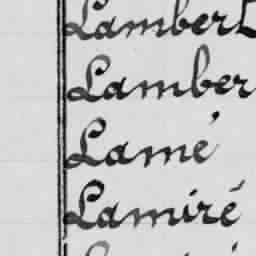 Lambert
Lamber
Lamé
Lamiré